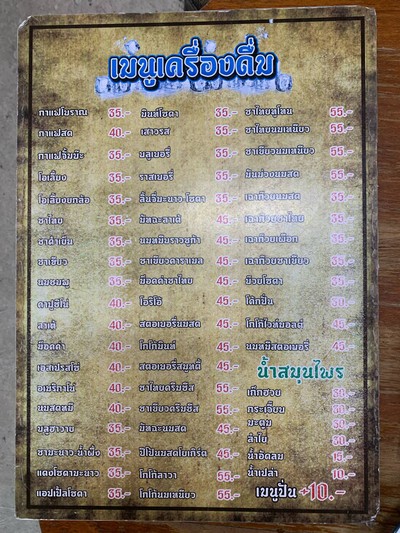 เมนูเครื่องดื่ม
กาแฟโบราณ 35.-
กาแฟสด 40.-
กาแฟจั๊มบ๊ะ 35.-
โอเลี้ยง 35.-
โอเลี้ยงยกล้อ 35.-
ชาไทย 35.-
ชาดำเย็น 35.-
ชาเขียว 35.-
นมชมพู 35.-
คาปูชิโน่ 40.-
ลาเต้ 40.-
ม็อคค่า 40.-
เอสเปรสโซ่ 40.-
อเมริกาโน่ 40.-
นมสดหมี 40.-
บลูฮาวาย 35.-
ชามะนาว-น้ำผึ้ง 35.-
แดงโซดามะนาว 35.-
แอปเปิ้ลโซดา 35.-
มินท์โซดา 35.-
เสาวรส 35.-
บลูเบอรี่ 35.-
ราสเบอรี่ 35.-
ลิ้นจี่มะนาว-โซดา 35.-
มัทฉะลาเต้ 45.-
นมหมีบราวชูก้า 45.-
ชาเขียวคาราเมล 45.-
ม็อคค่าชาไทย 45.-
โอริโอ้ 45.-
สตอเบอรี่นมสด 45.-
โกโก้มินท์ 45.-
สตอเบอรี่สมูทตี้ 45.-
ชาไทยครีมชีส 55.-
ชาเขียวครีมชีส 55.-
มัทฉะนมสด 45.-
ปีโป้นมสดโยเกิร์ต 45.-
โกโก้ลาวา 55.-
โกโก้นมเหนียว 55.-
ชาไทยทูโทน 55.-
ชาไทยนมเหนียว 55.-
ชาเขียวนมเหนียว 55.-
มันม่วงนมสด 55.-
เฉาก๊วยนมสด 55.-
เฉาก๊วยชาไทย
เฉาก๊วยเผือก
เฉาก๊วยชาเขียว
บ๊วยโซดา
โค้กปั่น
โกโก้ไวท์มอลต์ 45.-
นมหมีสตอเบอรี่ 45.-
น้ำสมุนไพร
เก๊กฮวย
กระเจี๊ยบ
มะตูม
ลำไย
น้ำอัดลม 15.-
น้ำเปล่า 10.-
เมนูปั่น +10.-